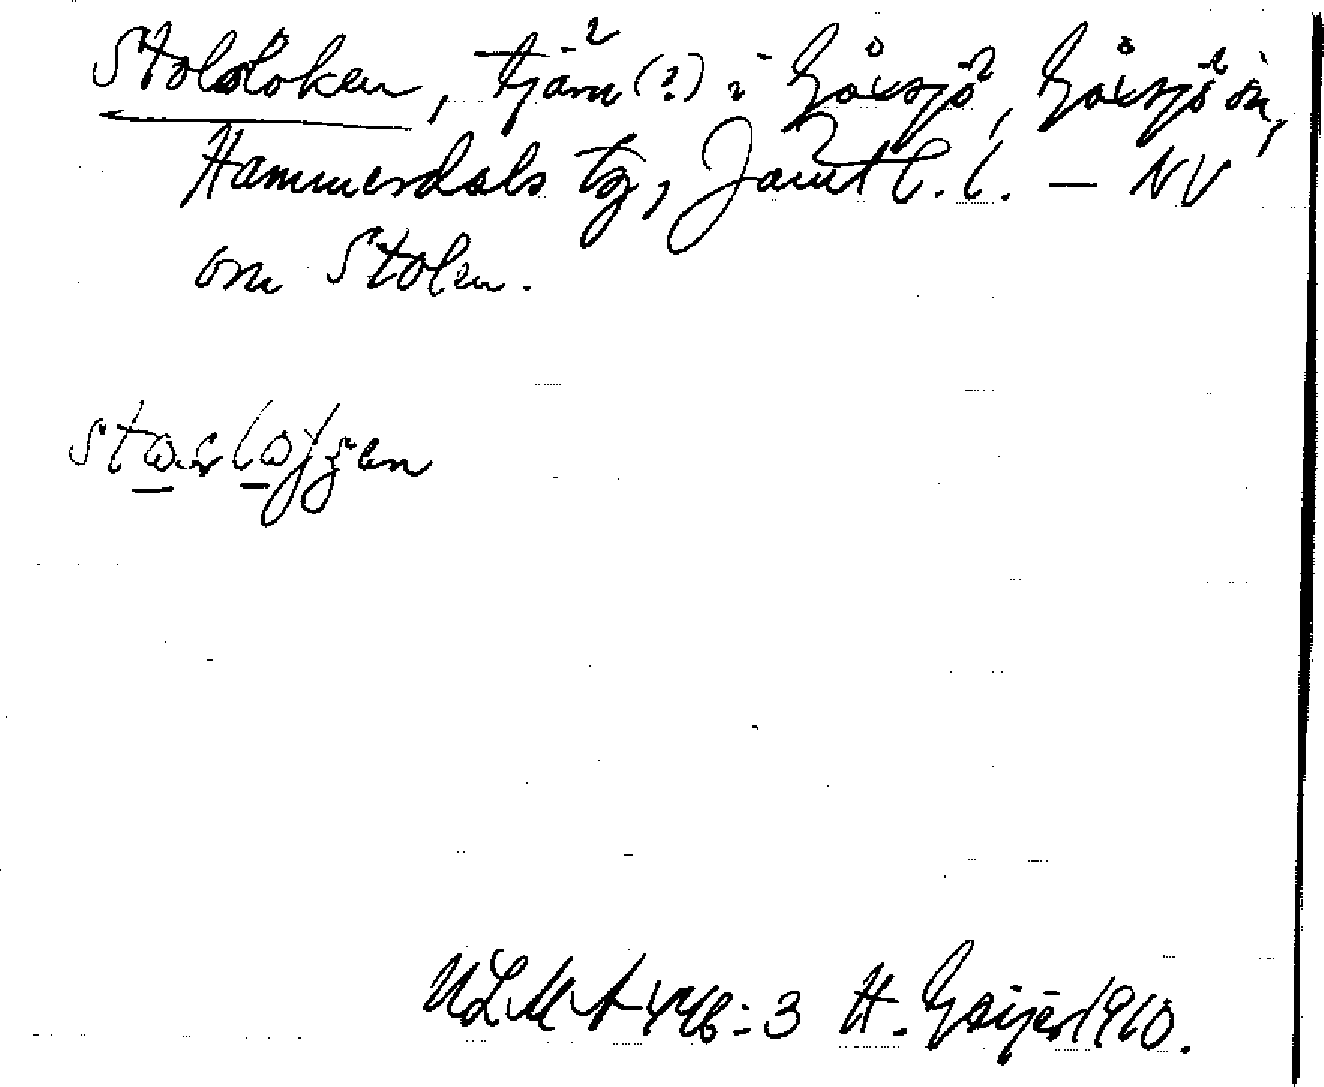 Stolsloken, tjärn (?) i Gåxsjö, Gåxsjö sn,
Hammerdals tg, Jämtl. l. — NV
om Stolen.
ULMA 446:3 H. Geijer 1910.